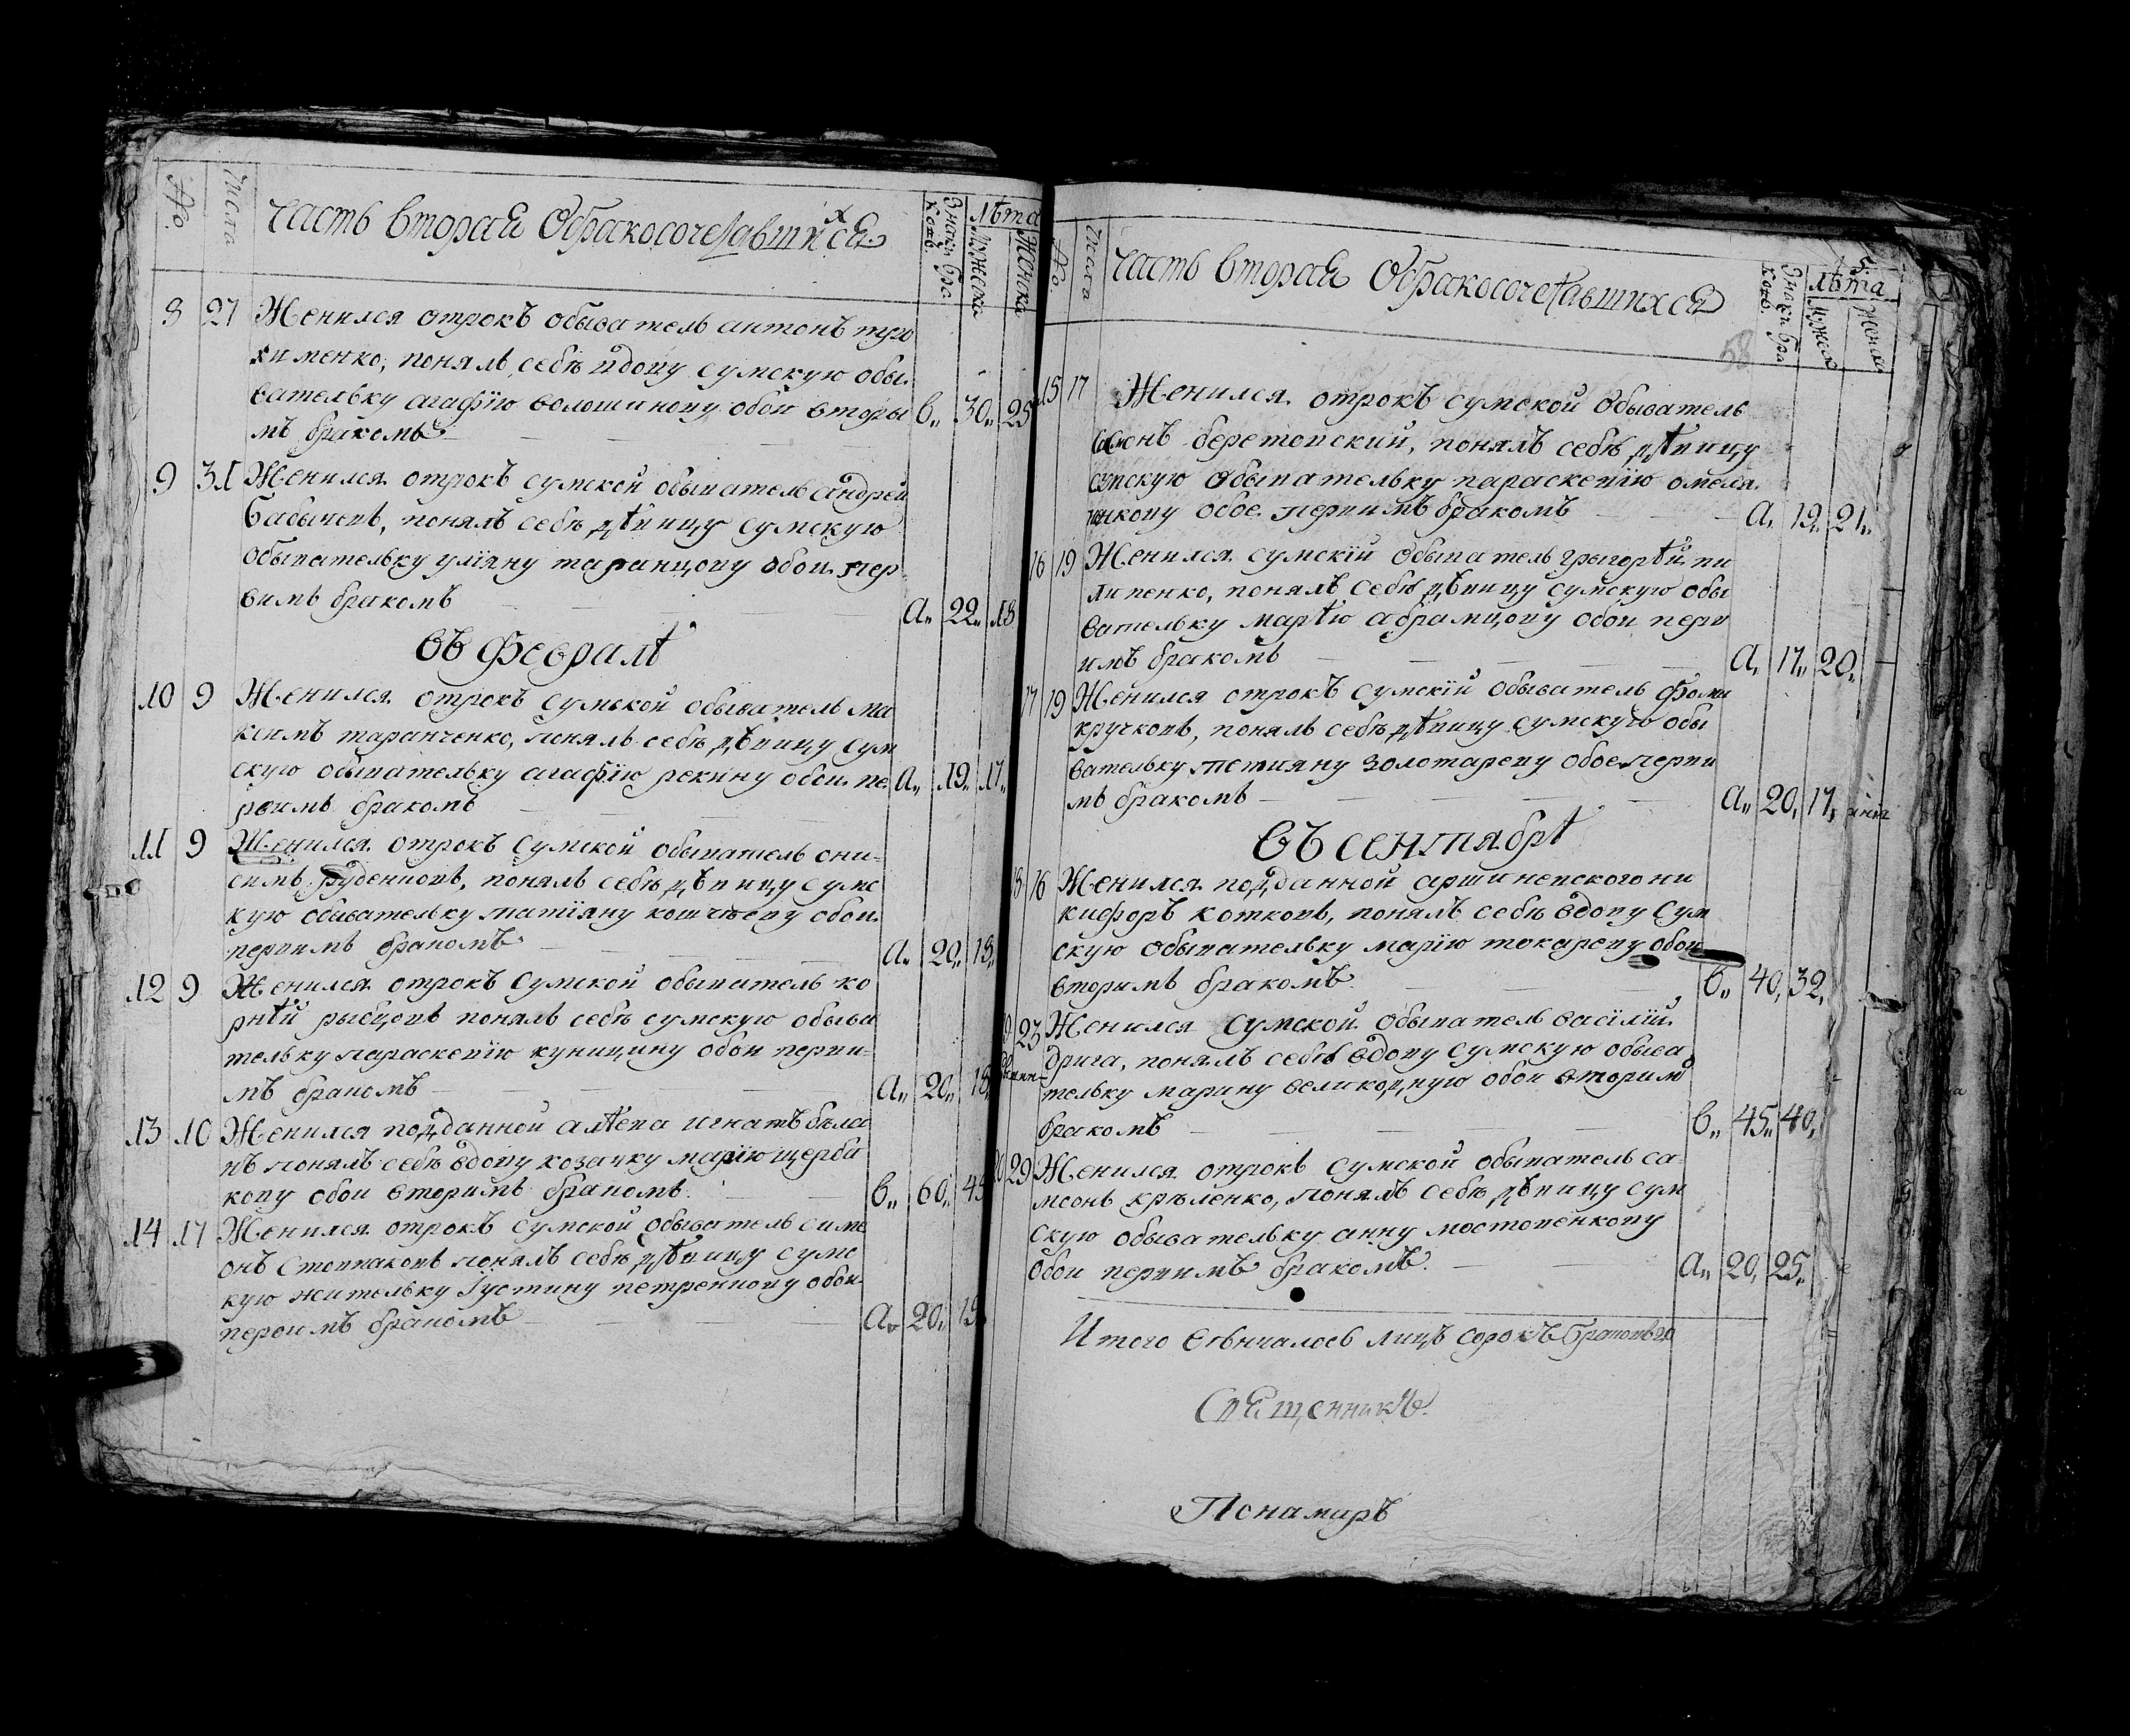 №. Числа Часть вторая Обракосочетавшихся Знаки бра ковъ. Лѣта Мужеска Женска
8 27 Женился отрокъ обыватель антонъ тро
хименко, понялъ себѣ вдову сумскую обы
вательку агафїю волошинову обои вторы
мъ бракомъ В„ 30„ 25
9 31 Женился отрокъ сумской обыватель андрей
бабычевъ, понялъ себѣ дѣвицу сумскую
обывательку улїяну таранцову обои пер
вимъ бракомъ А„ 22„ 18
въ Февралѣ
10 9 Женился отрокъ сумской обыватель ма
ксимъ таранченко, понялъ себѣ дѣвицу сум
скую обывательку агафїю рекину обои пе
рвимъ бракомъ А„ 19„ 17„
11 9 Женился отрокъ сумской обыватель они=
симъ руденковъ, понялъ себѣ дѣвицу сумс
кую обывательку татїяну кошчѣеву обои
первимъ бракомъ А„ 20„ 18„
12 9 Женился отрокъ сумской обыватель ко
рнѣй рыбцовъ понялъ себѣ сумскую обыва
тельку параскевїю куницину обои перви=
мъ бракомъ А„ 20„ 18
13 10 Женился подданной алѣева игнатъ бѣла
нъ понялъ себѣ вдову козачку марїю щерба
кову обои вторимъ бракомъ В„ 60„ 45
14 17 Женился отрокъ сумской обыватель симе
онъ стовпаковъ понялъ себѣ дѣвицу сумс
кую жительку Іустину петренкову обои
первимъ бракомъ А„ 20„ 19
№. Числа Часть вторая Обракосочетавшихся Знакъ бра ковъ. Лѣта Мужеска Женска
58
15 17 Женился отрокъ сумской обыватель
беретовский, понялъ себѣ дѣвицу
сумскую обывательку параскевїю омеля
кову обое первимъ бракомъ А„ 19„ 21„
16 19 Женился сумскїй обыватель григорѣй пи
липенко, понялъ себѣ дѣвицу сумскую обы
вательку марѣю абрамцову обои перв
имъ бракомъ А„ 17„ 20„
17 19 Женился отрокъ сумскїй обыватель фома
кручковъ, понялъ себѣ дѣвицу сумскую обы
вательку тетияну золотареву обое перви
мъ бракомъ А„ 20„ 17„
въ сентябрѣ
18 16 Женился подданной аршиневского ни
кифоръ котковъ, понялъ себѣ вдову сум
скую обывательку марїю токареву обои
вторимъ бракомъ В„ 40„ 32„
19 23 Женился сумской обыватель васїлїй
дрига, понялъ себѣ вдову сумскую обыва
тельку марину великодную обои вторим
бракомъ В„ 45„ 40„
20 29 Женился отрокъ сумской обыватель са
мсонъ крѣленко, понялъ себѣ дѣвицу сум
скую обывательку анну мостовенкову
обои первимъ бракомъ А„ 20„ 25„
Итого Венчалось лицъ сорокъ браковъ 20
Священникъ
Понамаръ